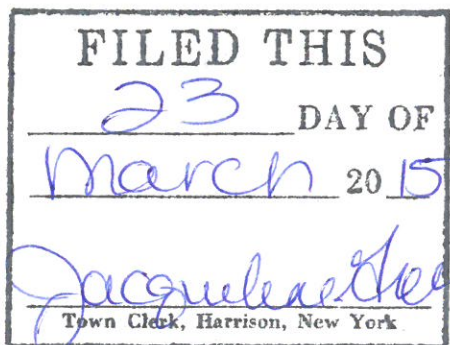 FILED THIS
23 DAY OF
March 20 15
Jacqueline
Town Clerk, Harrison, New York